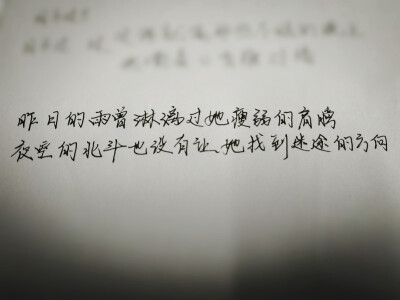 昨日的雨曾淋漓过她瘦弱的肩膀
夜空的北斗也没有让她找到迷途的方向